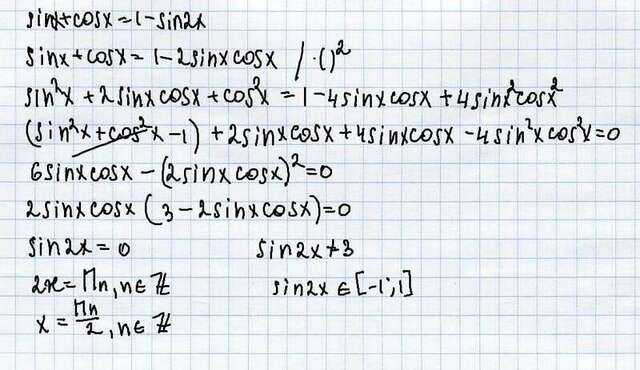 sinx+cosx=1-sin2x
sinx+cosx=1-2sinxcosx /·()²
sin²x+2sinxcosx+cos²x=1-4sinxcosx+4sinx²cosx²
(sin²x+cos²x-1)+2sinxcosx+4sinxcosx-4sin²xcos²x=0
6sinxcosx-(2sinxcosx)²=0
2sinxcosx(3-2sinxcosx)=0
sin2x=0 sin2x≠3
2x=Πn, n∈ℤ sin2x∈[-1;1]
x=Πn/2, n∈ℤ